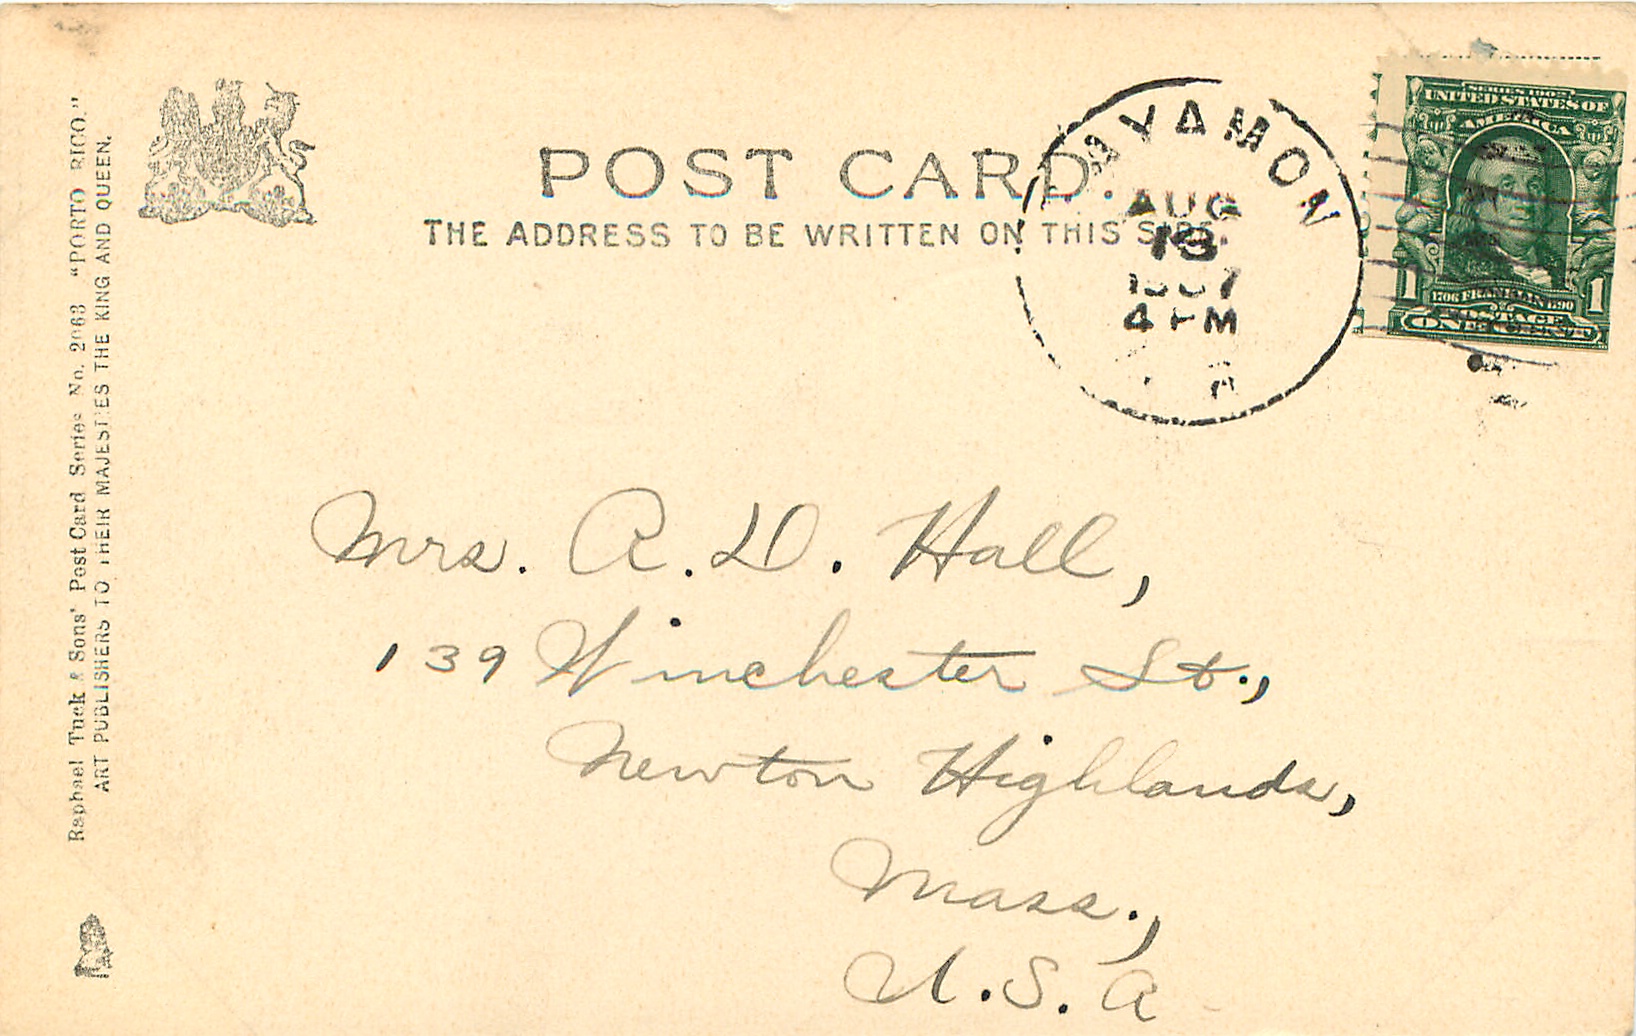 POST CARD.
THE ADDRESS TO BE WRITTEN ON THIS SIDE.
BAYAMON
AUG
1907
4 PM
SERIES 1902
UNITED STATES OF
AMERICA
1 1706 FRANKLIN 1790 1
POSTAGE
ONE CENT
Mrs. A. D. Hall,
139 Winchester St.,
Newton Highlands,
Mass.,
U.S.A
Raphael Tuck & Sons' Post Card Series No. 2063 "PORTO RICO."
ART PUBLISHERS TO THEIR MAJESTIES THE KING AND QUEEN.